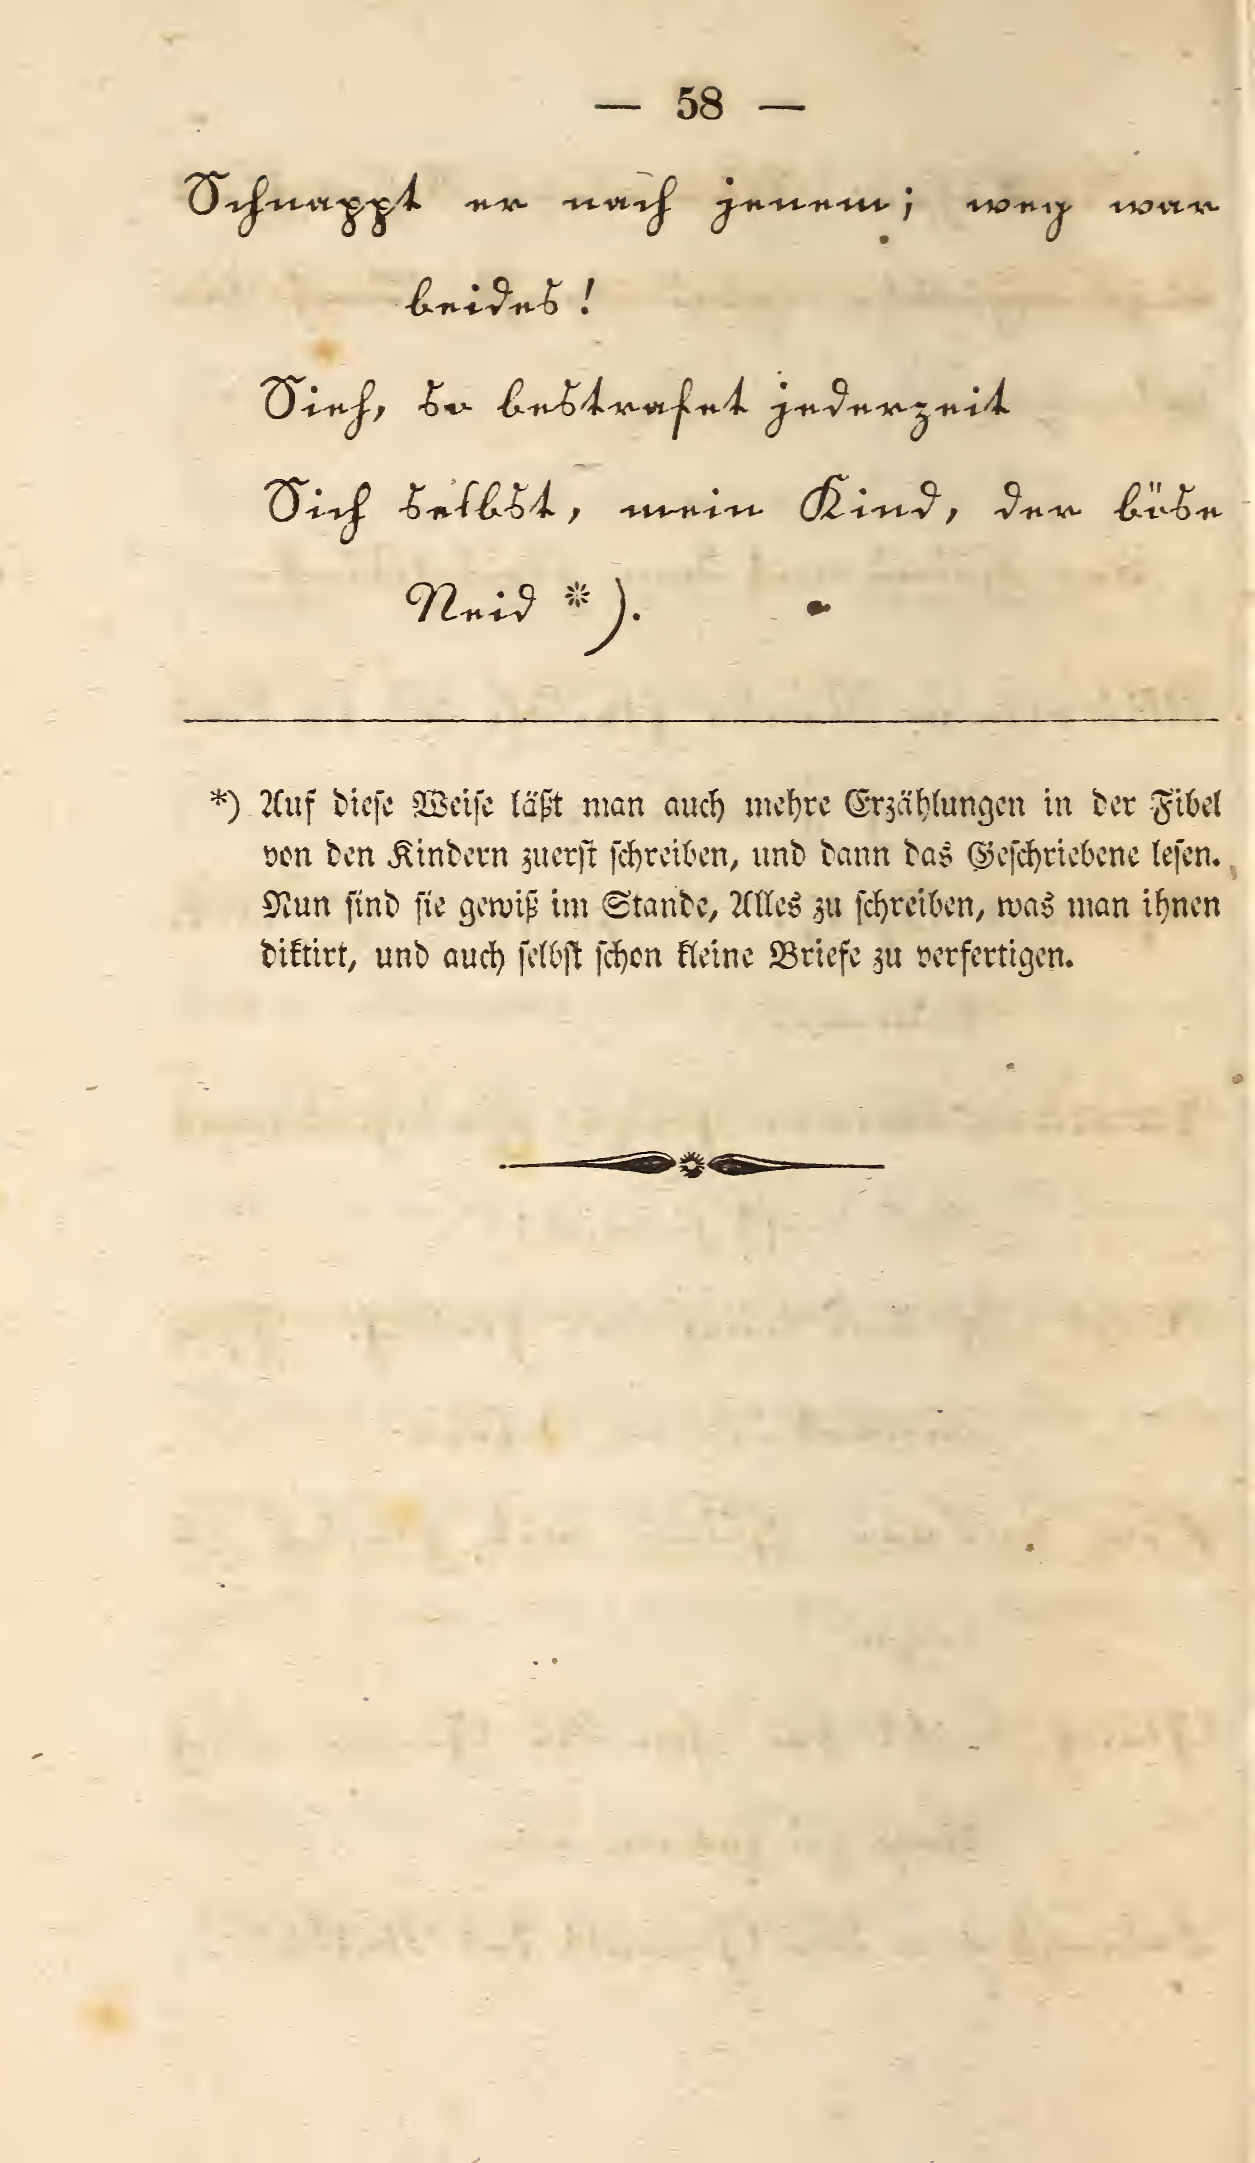 — 58 —
Schnappt er nach jenem; weg war
beides!
Sieh, so bestrafet jederzeit
Sich selbst, mein Kind, der böse
Neid *).
*) Auf dieſe Weiſe läßt man auch mehre Erzählungen in der Fibel
von den Kindern zuerſt ſchreiben, und dann das Geſchriebene leſen.
Nun ſind ſie gewiß im Stande, Alles zu ſchreiben, was man ihnen
diktirt, und auch ſelbſt ſchon kleine Briefe zu verfertigen.